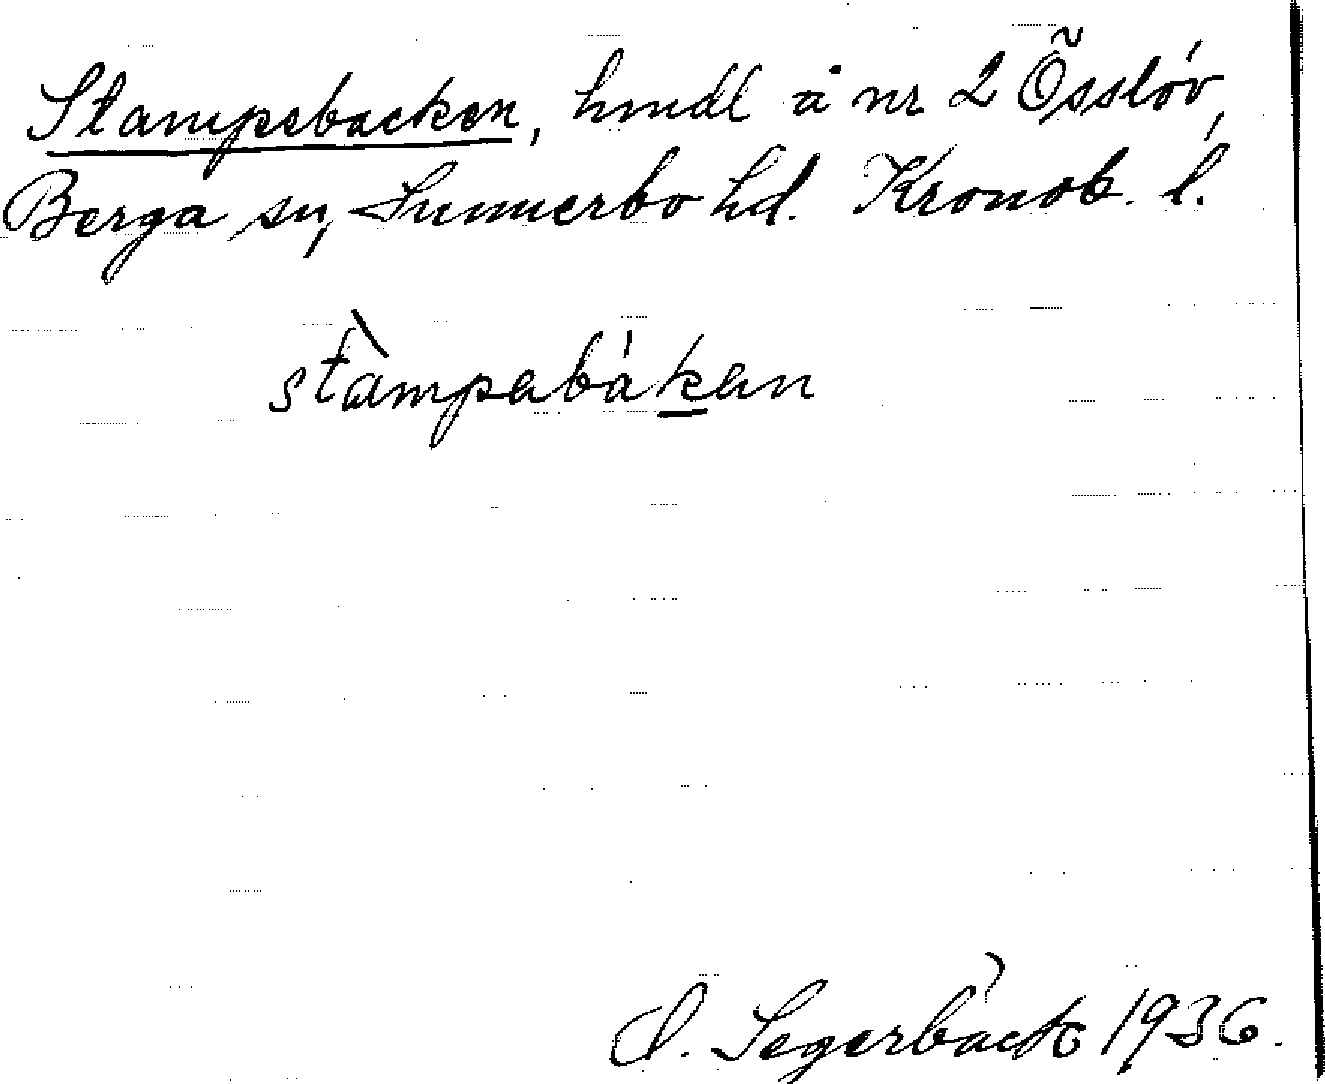 Stampebacken, hmdl å nr 2 Össlöv,
Berga sn, Sunnerbo hd. Kronob. l.
stàmpabákan
Segerbäck 1936.